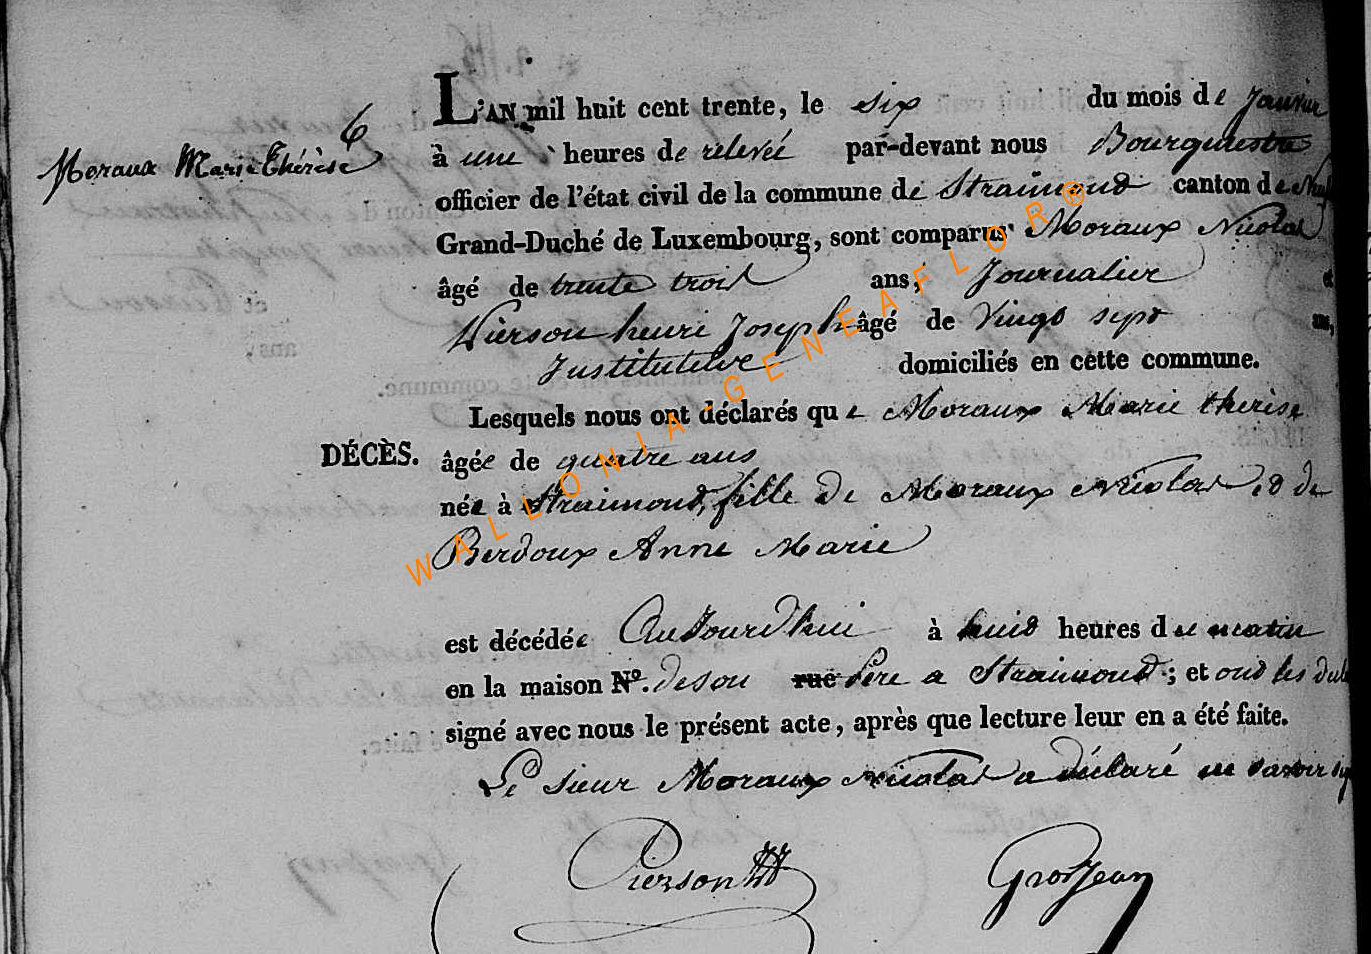 6
Moraux Marie Thérèse
L'AN mil huit cent trente, le six du mois de Janvier
à une heures de relevée par-devant nous Bourguestre
officier de l'état civil de la commune de Straimond canton de Neuf
Grand-Duché de Luxembourg, sont comparus Moraux Nicolas
âgé de trente trois ans, Journalier et
Pierson henri Joseph âgé de Vingt sept ans,
Instituteur domiciliés en cette commune.
Lesquels nous ont déclarés que Moraux Marie therese
DÉCÈS. âgée de quatre ans
née à Straimond, fille de Moraux Nicolas et de
Berdoux Anne Marie
est décédée Aujourdhui à huit heures du matin
en la maison No. de son rue Père a Straimond ; et ont les
signé avec nous le présent acte, après que lecture leur en a été faite.
Le sieur Moraux Nicolas a déclaré ne savoir
Pierson
Grosjean
WALLONIA-GENEAFLOR®